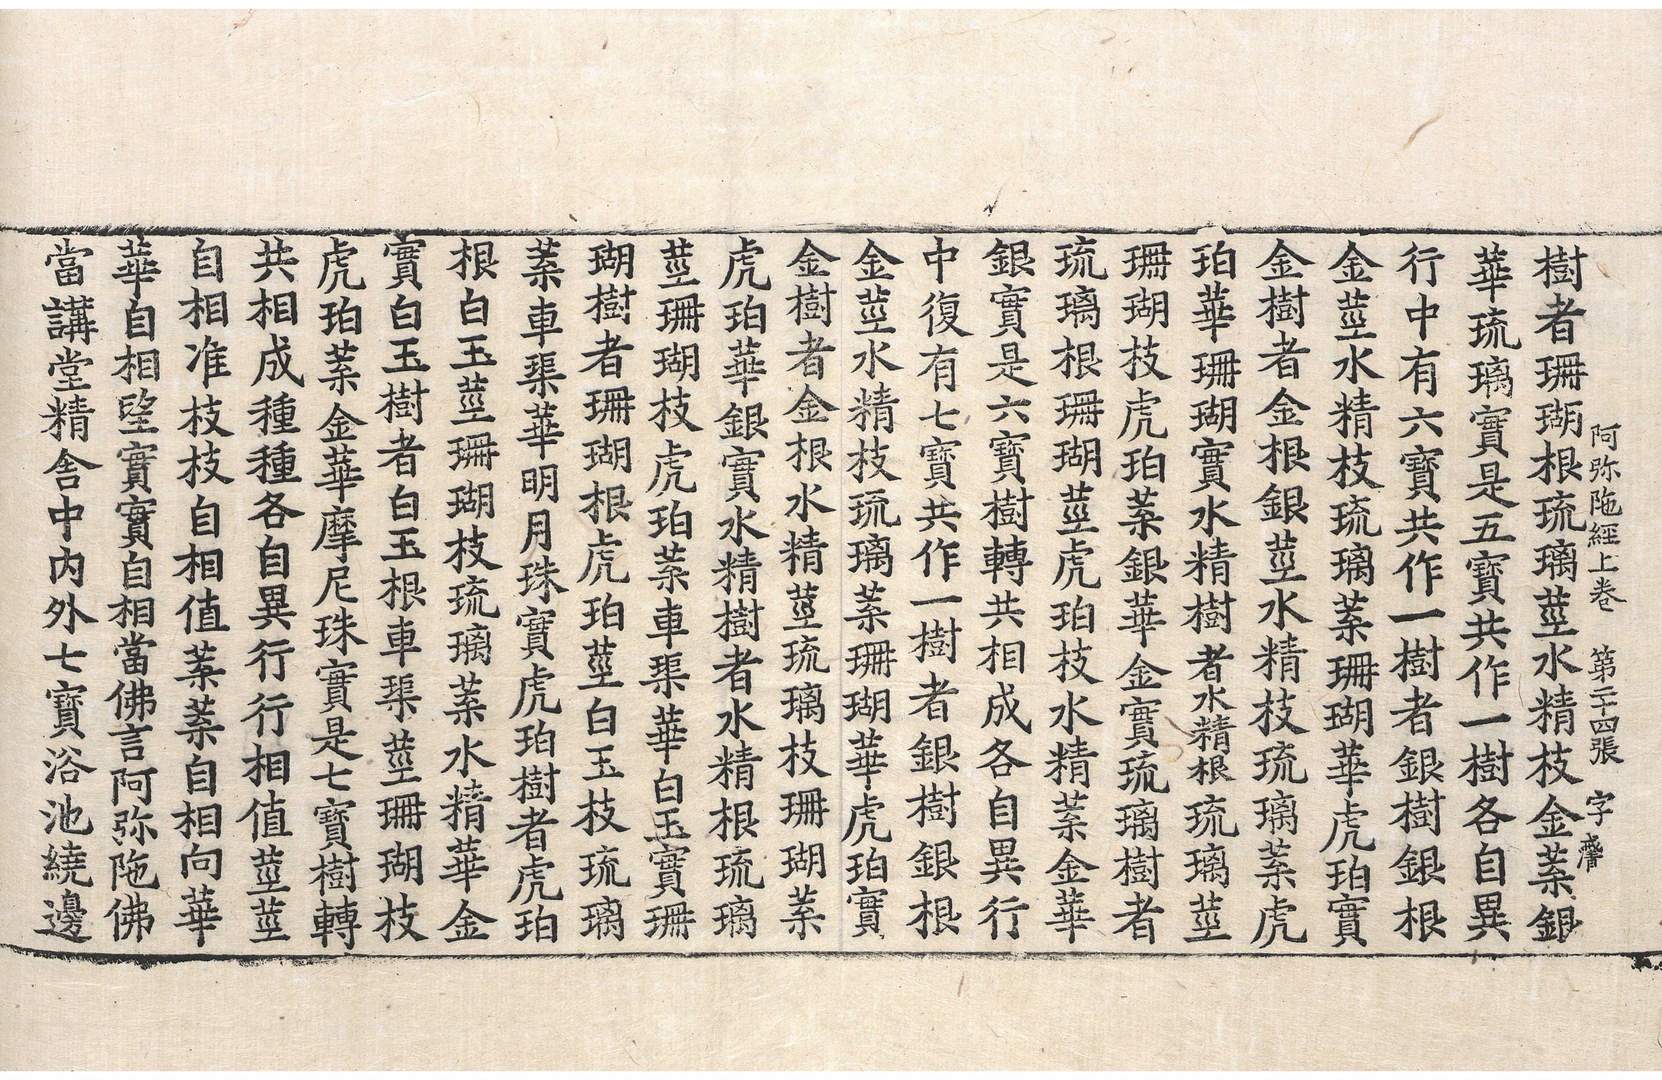 阿弥陁經上卷　第二十四張　字
樹者珊瑚根琉璃莖水精枝金葉銀
華琉璃實是五寶共作一樹各自異
行中有六寶共作一樹者銀樹銀根
金莖水精枝琉璃葉珊瑚華虎珀實
金樹者金根銀莖水精枝琉璃葉虎
珀華珊瑚實水精樹者水精根琉璃莖
珊瑚枝虎珀葉銀華金實琉璃樹者
琉璃根珊瑚莖虎珀枝水精葉金華
銀實是六寶樹轉共相成各自異行
中復有七寶共作一樹者銀樹銀根
金莖水精枝琉璃葉珊瑚華虎珀實
金樹者金根水精莖琉璃枝珊瑚葉
虎珀華銀實水精樹者水精根琉璃
莖珊瑚枝虎珀葉車渠華白玉實珊
瑚樹者珊瑚根虎珀莖白玉枝琉璃
葉車渠華明月珠實虎珀樹者虎珀
根白玉莖珊瑚枝琉璃葉水精華金
實白玉樹者白玉根車渠莖珊瑚枝
虎珀葉金華摩尼珠實是七寶樹轉
共相成種種各自異行行相值莖莖
自相准枝枝自相值葉葉自相向華
華自相望實實自相當佛言阿弥陁佛
當講堂精舍中内外七寶浴池繞邊